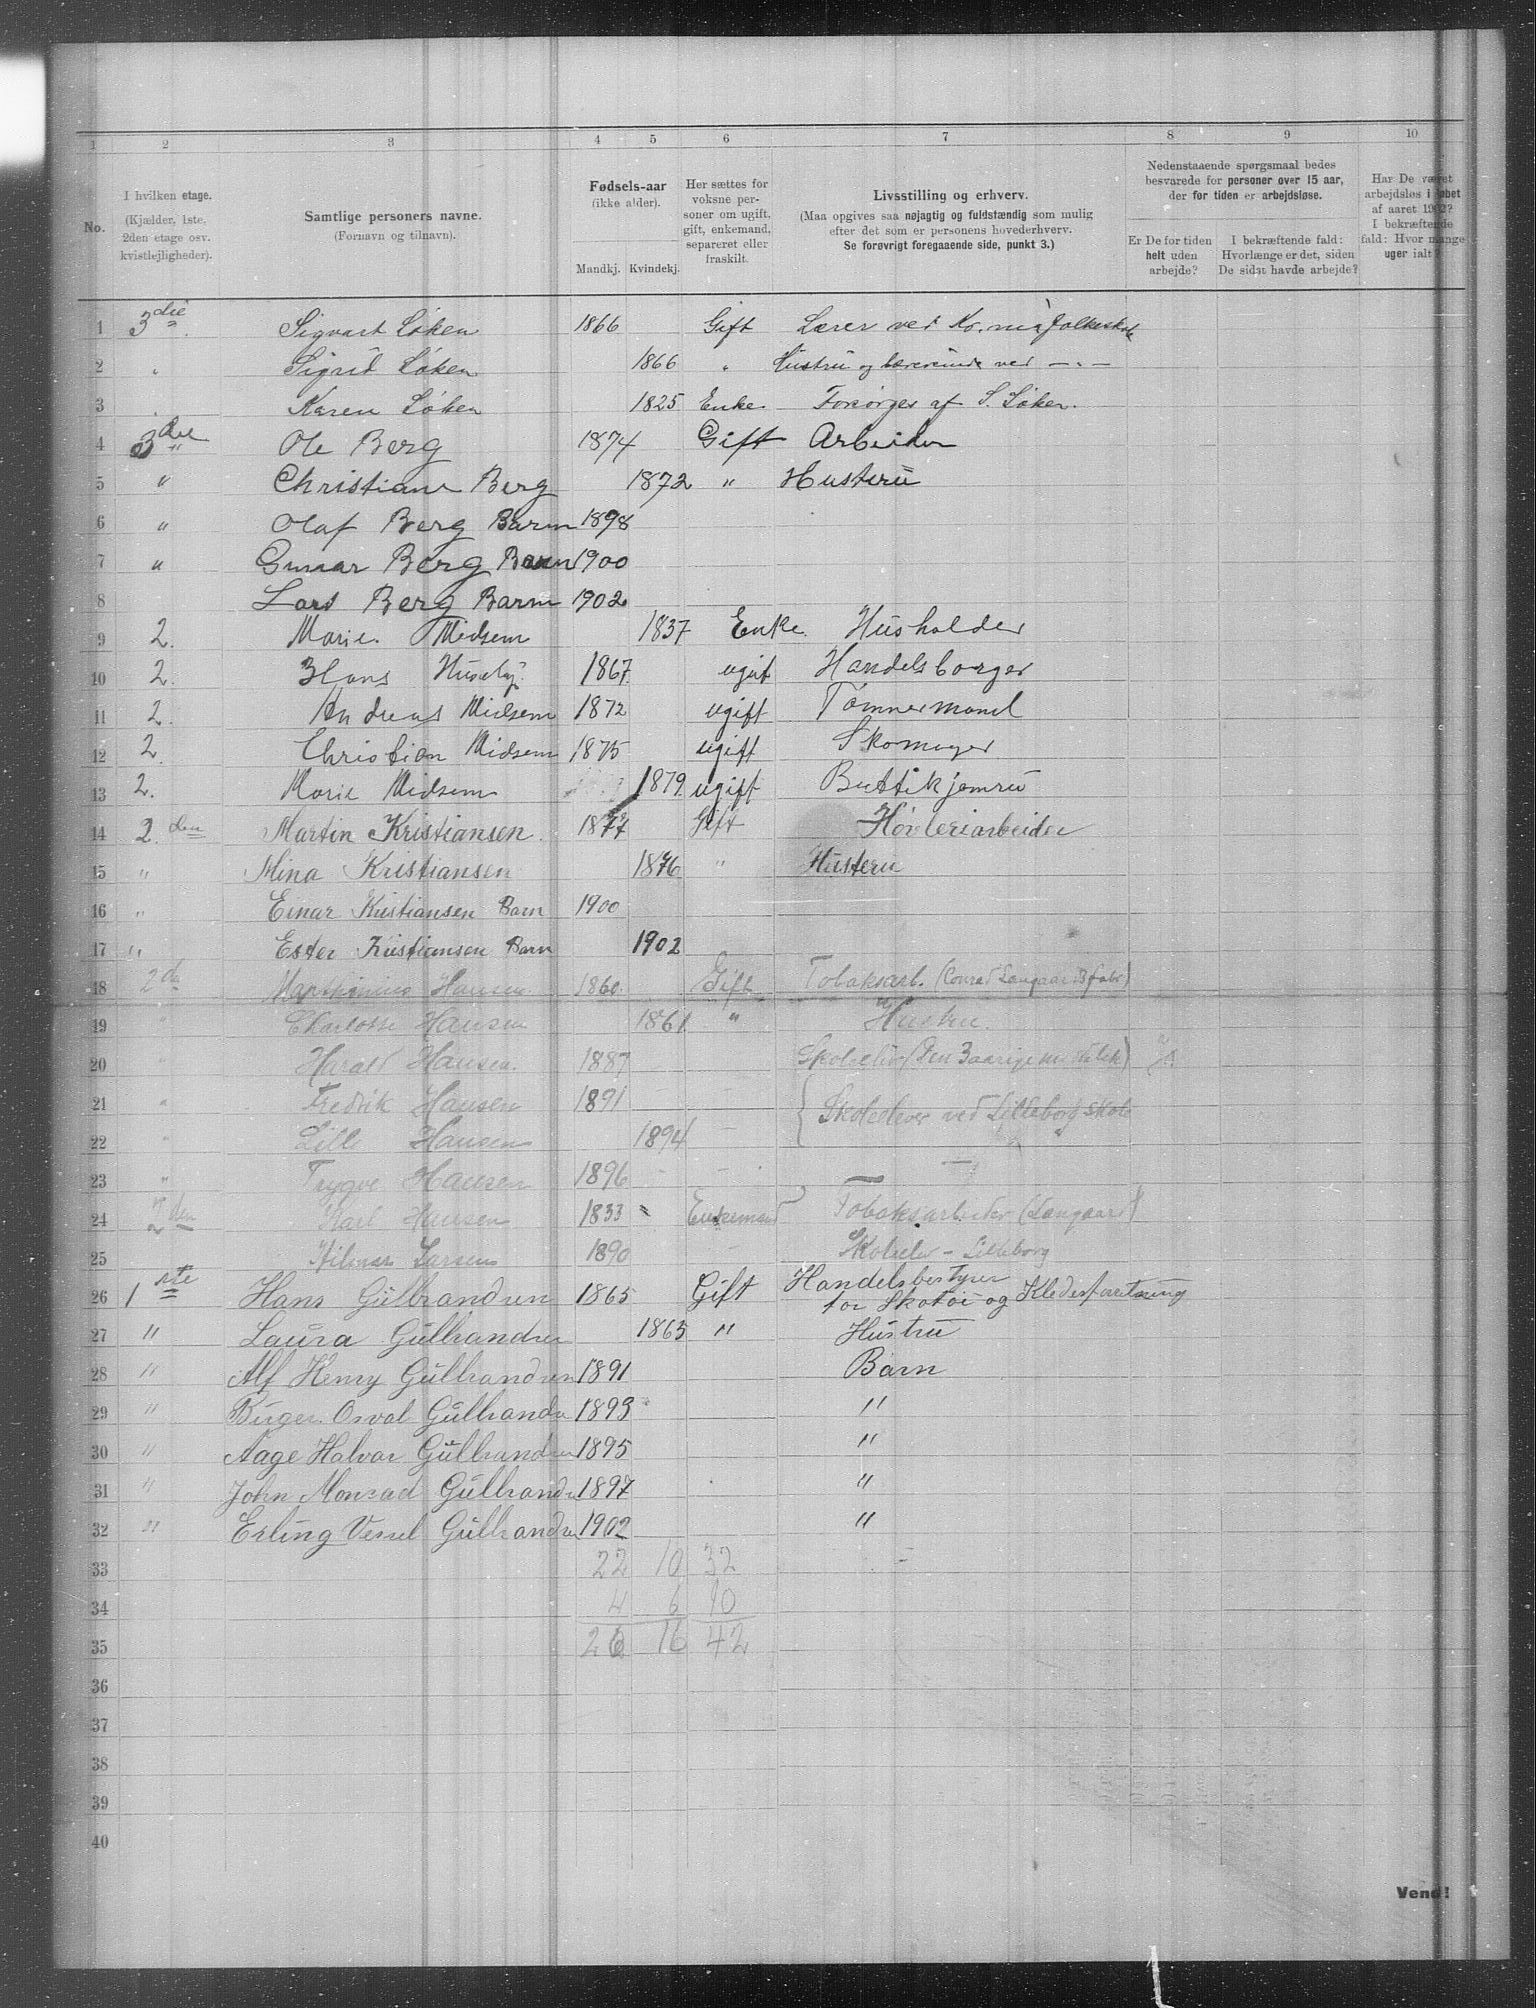 1 2 3 4 5 6 7 8 9 10
No.
I hvilken etage.
(Kjælder, 1ste,
2den etage osv.
kvistlejligheder).
Samtlige personers navne.
(Fornavn og tilnavn).
Fødsels-aar
(ikke alder).
Mandkj. Kvindekj.
Her sættes for
voksne per-
soner om ugift,
gift, enkemand,
separeret eller
fraskilt.
Livsstilling og erhverv.
(Maa opgives saa nøjagtig og fuldstændig som mulig
efter det som er personens hovederhverv.
Se forøvrigt foregaaende side, punkt 3.)
Nedenstaaende spørgsmaal bedes
besvarede for personer over 15 aar,
der for tiden er arbejdsløse.
Er De for tiden
helt uden
arbejde?
I bekræftende fald:
Hvorlænge er det, siden
De sidst havde arbejde?
Har De været
arbejdsløs i løbet
af aaret 1902?
I bekræftende
fald: Hvor mange
uger ialt?
1 3die Sigvart Løken 1866 Gift Lærer ved Kr.nia folkeskole
2 " Sigrid Løken 1866 " Hustru og Lærerinde ved —"—
3 " Karen Løken 1825 Enke Forsørges af S. Løken.
4 3die Ole Berg 1874 Gift Arbeider
5 " Christiane Berg 1872 " Husteru
6 " Olaf Berg Barn 1898
7 " Gunar Berg Barn 1900
8 Lars Berg Barn 1902
9 2. Marie Midsem 1837 Enke Husholder
10 2. Hans Huseby 1867 ugift Handelsborger
11 2. Andreas Midsem 1872 ugift Tømmermand
12 2. Christian Midsem 1875 ugift Skomager
13 2. Marie Midsem 1879 ugift Buttikjomru
14 2.den Martin Kristiansen 1877 Gift Høvleriarbeider
15 " Mina Kristiansen 1876 " Husteru
16 " Einar Kristiansen Barn 1900
17 " Ester Kristiansen Barn 1902
18 2den Marthinius Hansen 1860 Gift Tobaksarb. (Conrad Langaards fabr)
19 " Charlotte Hansen 1861 " Hustru
20 Harald Hansen 1887 Skoleelev (Den 3aarige middelsk)
21 " Fredrik Hansen 1891 Skoleelever ved Lilleborg skole
22 " Lilli Hansen 1894 —
23 " Trygve Hansen 1896 — — —
24 2den Karl Hansen 1833 Enkemand Tobaksarbeider (Langaard)
25 Hilmar Larsen 1890 Skoleelev - Lilleborg
26 1ste Hans Gulbrandsen 1865 Gift Handelsbestyrer
for Skotøi og Kledesforretning
27 " Laura Gulbrandsen 1865 " Hustru
28 " Alf Henry Gulbrandsen 1891 Barn
29 " Birger Osval Gulbrandsen 1893 "
30 " Aage Halvar Gulbrandsen 1895 "
31 " John Monrad Gulbrandsen 1897 "
32 " Erling Vessel Gulbrandsen 1902 "
33 22 10 32
34 4 6 10
35 26 16 42
36
37
38
39
40
Vend!